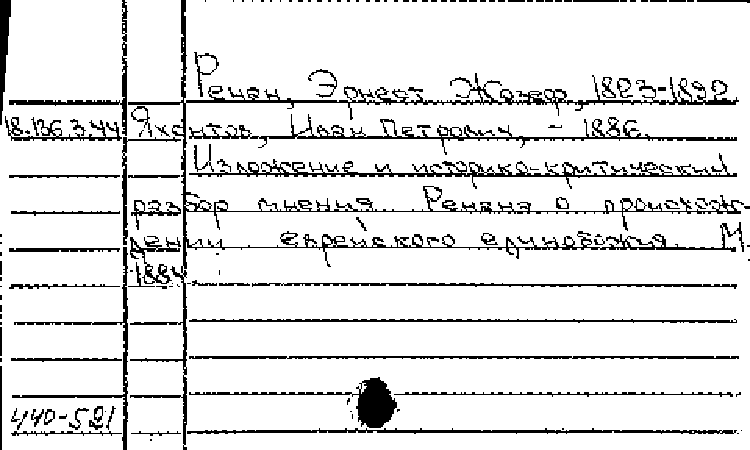 Ренан, Эрнест Жозеф, 1823-1892
18.136.3.44 Яхонтов, Иван Петрович, - 1886.
Изложение и историко-критический
разбор мнения Ренана о происхож-
дении еврейского единобожия. М.
1884
440-521